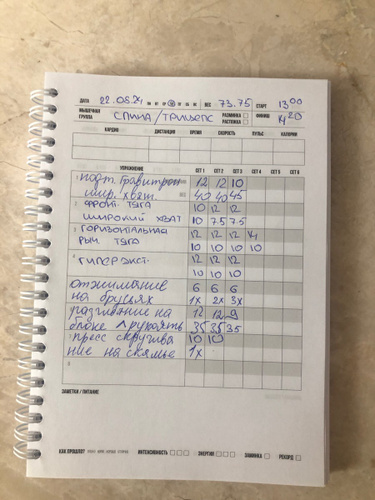 ДАТА 22.05.24 ВЕС 73.75 СТАРТ 13 00
МЫШЕЧНАЯ ГРУППА СПИНА/ТРИЦЕПС РАЗМИНКА РАСТЯЖКА ФИНИШ 14 20
КАРДИО ДИСТАНЦИЯ ВРЕМЯ СКОРОСТЬ ПУЛЬС КАЛОРИИ
УПРАЖНЕНИЕ СЕТ 1 СЕТ 2 СЕТ 3 СЕТ 4 СЕТ 5 СЕТ 6
подт. Гравитрон 12 12 10
шир. хват. 40 40 45
ФРОНТ. ТЯГА 10 12 12
ШИРОКИЙ ХВАТ 10 7.5 7.5
ГОРИЗОНТАЛЬНАЯ 12 12 12 14
РЫЧ. ТЯГА 10 10 10 10
ГИПЕРЭКСТ. 12 12 12
10 10 10
отжимание 6 6 6
на брусьях 1х 2х 3х
разгибание на 12 12 9
блоке Л рукоять 35 35 35
пресс скручива 10 10
ние на скамье 1х
ЗАМЕТКИ / ПИТАНИЕ
КАК ПРОШЛО? ИНТЕНСИВНОСТЬ ЭНЕРГИЯ ЗАМИНКА РЕКОРД